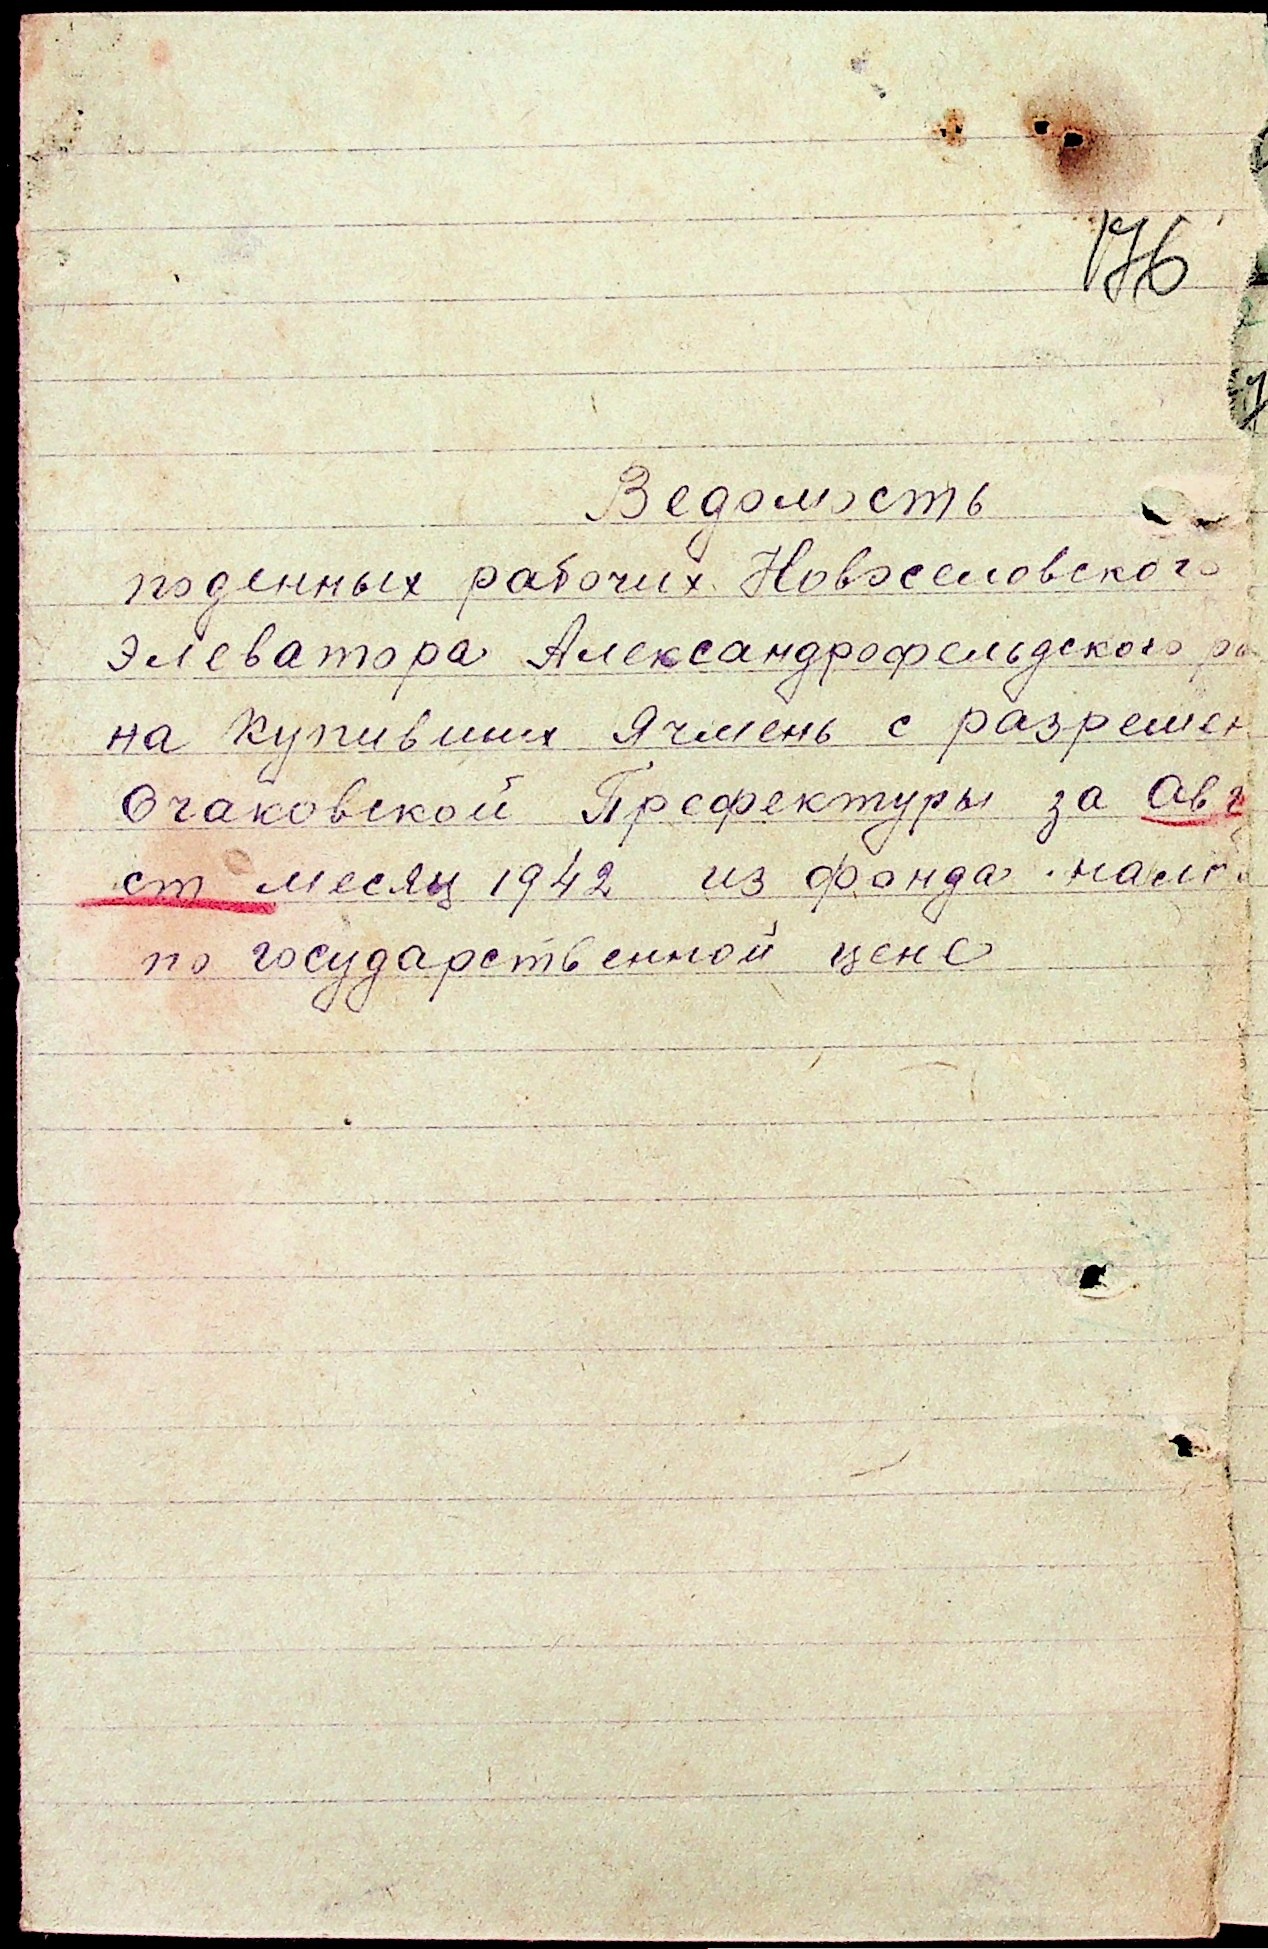 176
Ведомость
поденных рабочих Новоселовского
Элеватора Александрофельдского ра
на купивших Ячмень с разрешен
Очаковской Префектуры за Авг
ст месяц 1942 из фонда
по государственной цене